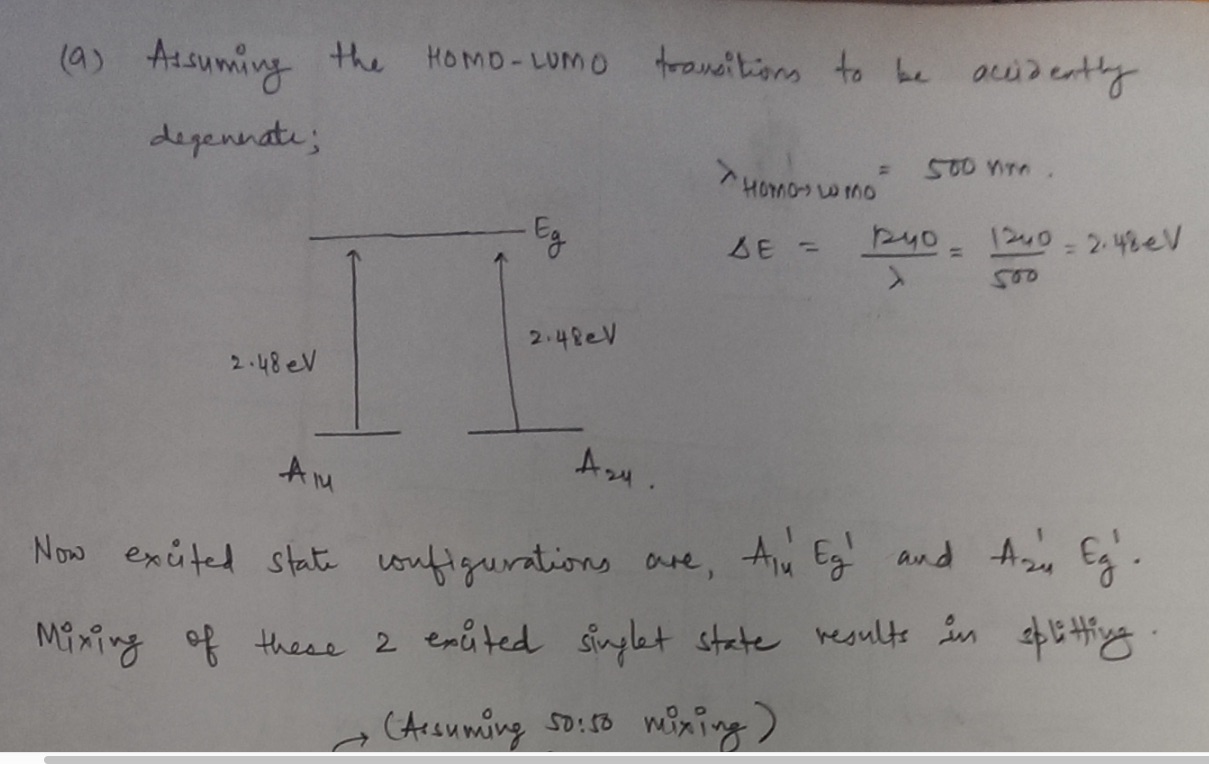 (a) Assuming the HOMO-LUMO transitions to be accidently
degenerate;
λ HOMO→LUMO = 500 nm.
ΔE = 1240/λ = 1240/500 = 2.48eV
Eg
2.48eV
2.48eV
A1u
A2u.
Now excited state configurations are, A1u¹ Eg¹ and A2u¹ Eg¹.
Mixing of these 2 excited singlet state results in splitting.
→ (Assuming 50:50 mixing)